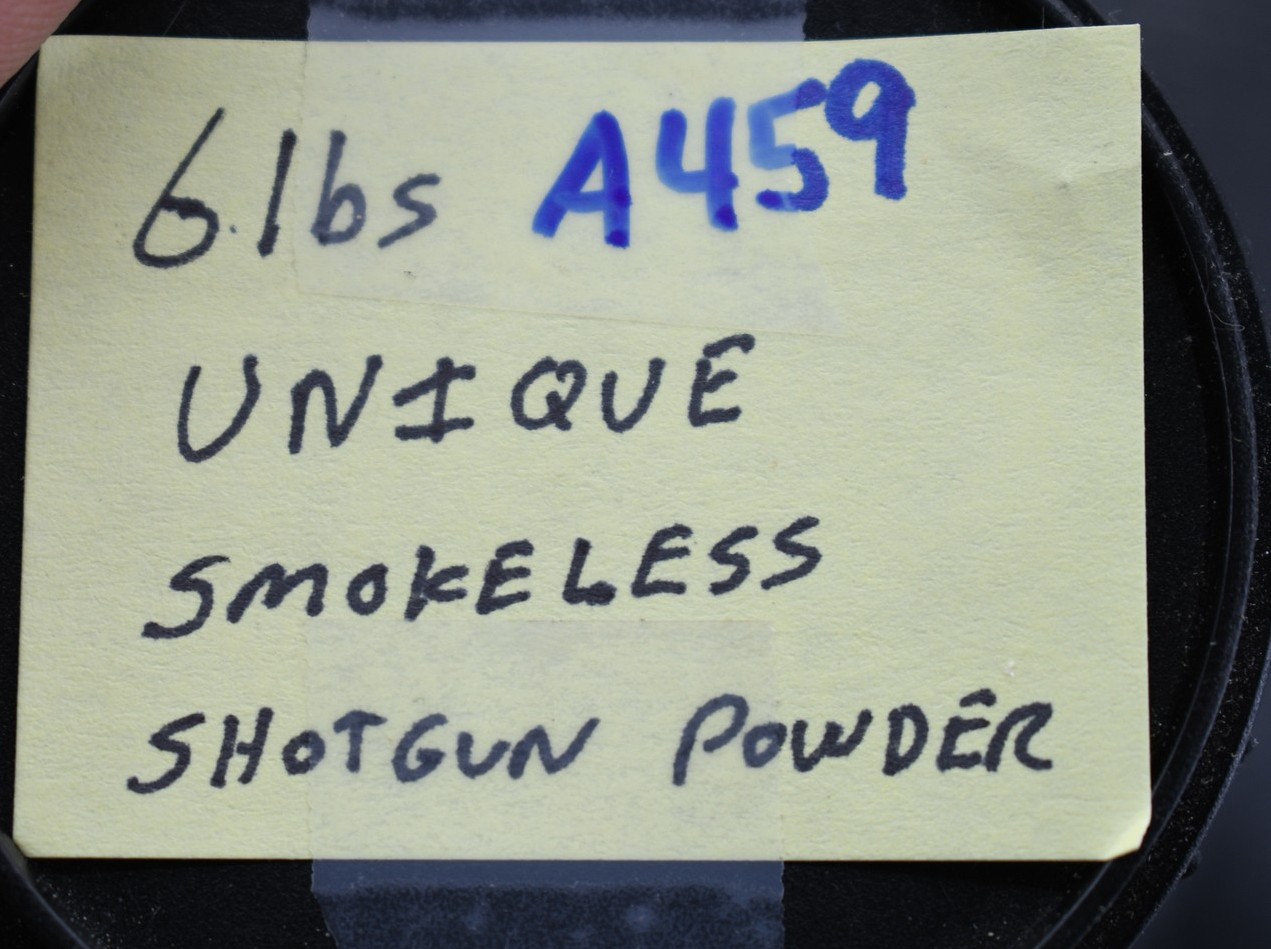 6 lbs A459
UNIQUE
SMOKELESS
SHOTGUN POWDER